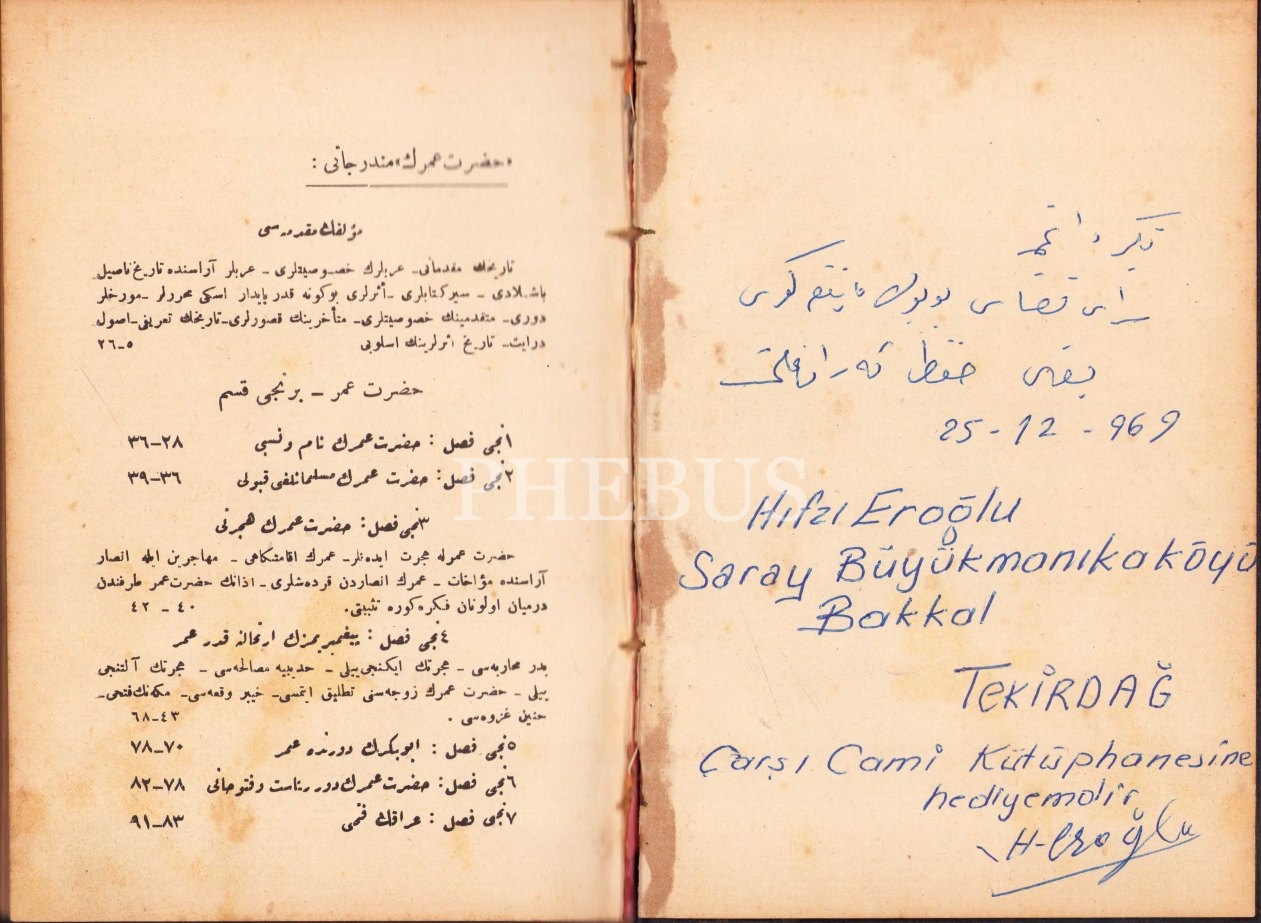 «حضرت عمرك» مندرجاتی :
مؤلفك مقدمه‌سی
تاریخك مقدماتی ـ عربلرك خصوصیتلری ـ عربلر آراسنده تاریخ ناصیل
باشلادی ـ سیر كتابلری ـ أثرلری بوكونه قدر پایدار اسكی محررلر ـ مورخلر
دوری ـ متقدمینك خصوصیتلری ـ متأخرینك قصورلری ـ تاریخك تعریفی ـ اصول
درایت ـ تاریخ اثرلرینك اسلوبی ٥ـ٢٦
حضرت عمر ـ برنجی قسم
١نجی فصل : حضرت عمرك نام و نسبی ٢٨ـ٣٦
٢نجی فصل : حضرت عمرك مسلمانلغی قبولی ٣٦ـ٣٩
٣نجی فصل : حضرت عمرك هجرتی
حضرت عمرله هجرت ایدنلر ـ عمرك اقامتكاهی ـ مهاجرین ایله انصار
آراسنده مؤاخات ـ عمرك انصاردن قردەشلری ـ اذانك حضرت عمر طرفندن
درمیان اولونان فكره كوره تثبیتی. ٤٠ ـ ٤٢
٤نجی فصل : پیغمبریمزك ارتحالنه قدر عمر
بدر محاربه‌سی ـ هجرتك ایكنجی ییلی ـ حدیبیه مصالحه‌سی ـ هجرتك آلتنجی
ییلی ـ حضرت عمرك زوجه‌سنی تطلیق ایتمسی ـ خیبر وقعه‌سی ـ مكه‌نك فتحی ـ
حنین غزوه‌سی . ٤٣ـ٦٨
٥نجی فصل : ابوبكرك دورنده عمر ٧٠ـ٧٨
٦نجی فصل : حضرت عمرك دور ریاست و فتوحاتی ٧٨ـ٨٢
٧نجی فصل : عراقك فتحی ٨٣ـ٩١
25-12-969
Hıfzı Eroğlu
Saray Büyükmanıkaköyü
Bakkal
TEKİRDAĞ
Çarşı Cami Kütüphanesine
hediyemdir
H-Eroğlu
PHEBUS